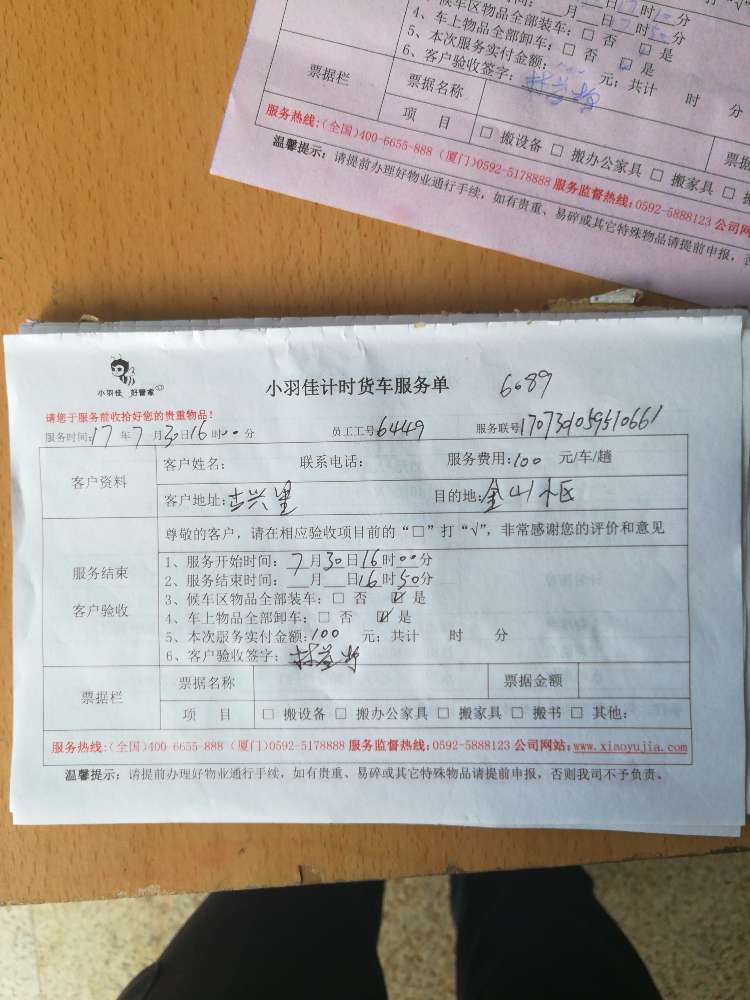 时间: 日17时10分
候车区物品全部装车: 月 日 时 分
4、车上物品全部卸车: □ 否 □ 是
5、本次服务实付金额: □ 否 □ 是
6、客户验收签字: 元; 共计 时 分
票据栏 票据名称
项 目 □ 搬设备 □ 搬办公家具 □ 搬家具 □ 票据
服务热线:(全国)400-6655-888 (厦门)0592-5178888 服务监督热线:0592-5888123 公司网
温馨提示: 请提前办理好物业通行手续, 如有贵重、易碎或其它特殊物品请提前申报, 否
小羽佳 好管家
小羽佳计时货车服务单 6689
请您于服务前收拾好您的贵重物品!
服务时间: 17年7月30日16时00分 员工工号 6449 服务联号
客户资料 客户姓名: 联系电话: 服务费用: 100 元/车/趟
客户地址: 目的地: 金山小区
尊敬的客户, 请在相应验收项目前的“□”打“√”, 非常感谢您的评价和意见
服务结束
客户验收
1、服务开始时间: 7月30日16时00分
2、服务结束时间: 月 日16时50分
3、候车区物品全部装车: □ 否 ☑ 是
4、车上物品全部卸车: □ 否 ☑ 是
5、本次服务实付金额: 100 元; 共计 时 分
6、客户验收签字:
票据栏 票据名称 票据金额
项 目 □ 搬设备 □ 搬办公家具 □ 搬家具 □ 搬书 □ 其他:
服务热线:(全国)400-6655-888 (厦门)0592-5178888 服务监督热线:0592-5888123 公司网站: www.xiaoyujia.com
温馨提示: 请提前办理好物业通行手续, 如有贵重、易碎或其它特殊物品请提前申报, 否则我司不予负责。